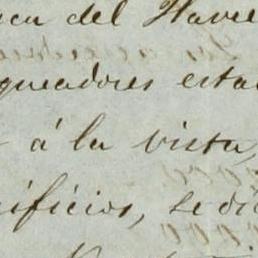 del Have
queadores esta
á la vista,
ificios, se di